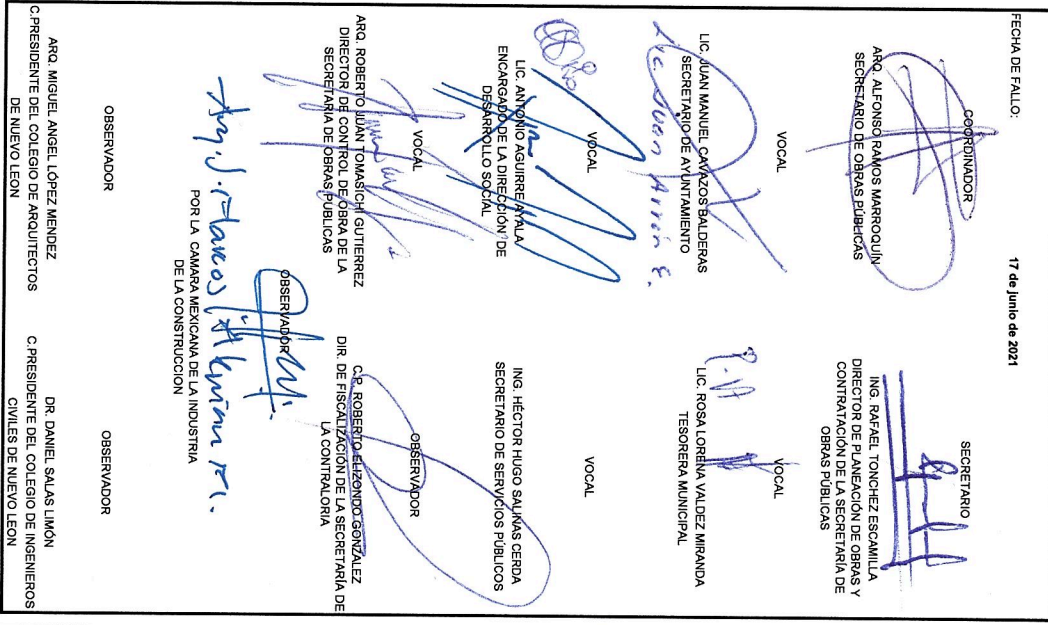 FECHA DE FALLO:
17 de junio de 2021
COORDINADOR
ARQ. ALFONSO RAMOS MARROQUÍN
SECRETARIO DE OBRAS PÚBLICAS
SECRETARIO
ING. RAFAEL TONCHEZ ESCAMILLA
DIRECTOR DE PLANEACIÓN DE OBRAS Y
CONTRATACIÓN DE LA SECRETARÍA DE
OBRAS PÚBLICAS
VOCAL
LIC. JUAN MANUEL CAVAZOS BALDERAS
SECRETARIO DE AYUNTAMIENTO
VOCAL
LIC. ROSA LORENA VALDEZ MIRANDA
TESORERA MUNICIPAL
VOCAL
LIC. ANTONIO AGUIRRE AYALA
ENCARGADO DE LA DIRECCIÓN DE
DESARROLLO SOCIAL
VOCAL
ING. HÉCTOR HUGO SALINAS CERDA
SECRETARIO DE SERVICIOS PÚBLICOS
VOCAL
ARQ. ROBERTO JUAN TOMASICHI GUTIERREZ
DIRECTOR DE CONTROL DE OBRA DE LA
SECRETARIA DE OBRAS PUBLICAS
OBSERVADOR
C.P. ROBERTO ELIZONDO GONZÁLEZ
DIR. DE FISCALIZACIÓN DE LA SECRETARÍA DE
LA CONTRALORIA
OBSERVADOR
POR LA CAMARA MEXICANA DE LA INDUSTRIA
DE LA CONSTRUCCION
OBSERVADOR
ARQ. MIGUEL ANGEL LÓPEZ MENDEZ
C.PRESIDENTE DEL COLEGIO DE ARQUITECTOS
DE NUEVO LEON
OBSERVADOR
DR. DANIEL SALAS LIMÓN
C.PRESIDENTE DEL COLEGIO DE INGENIEROS
CIVILES DE NUEVO LEON